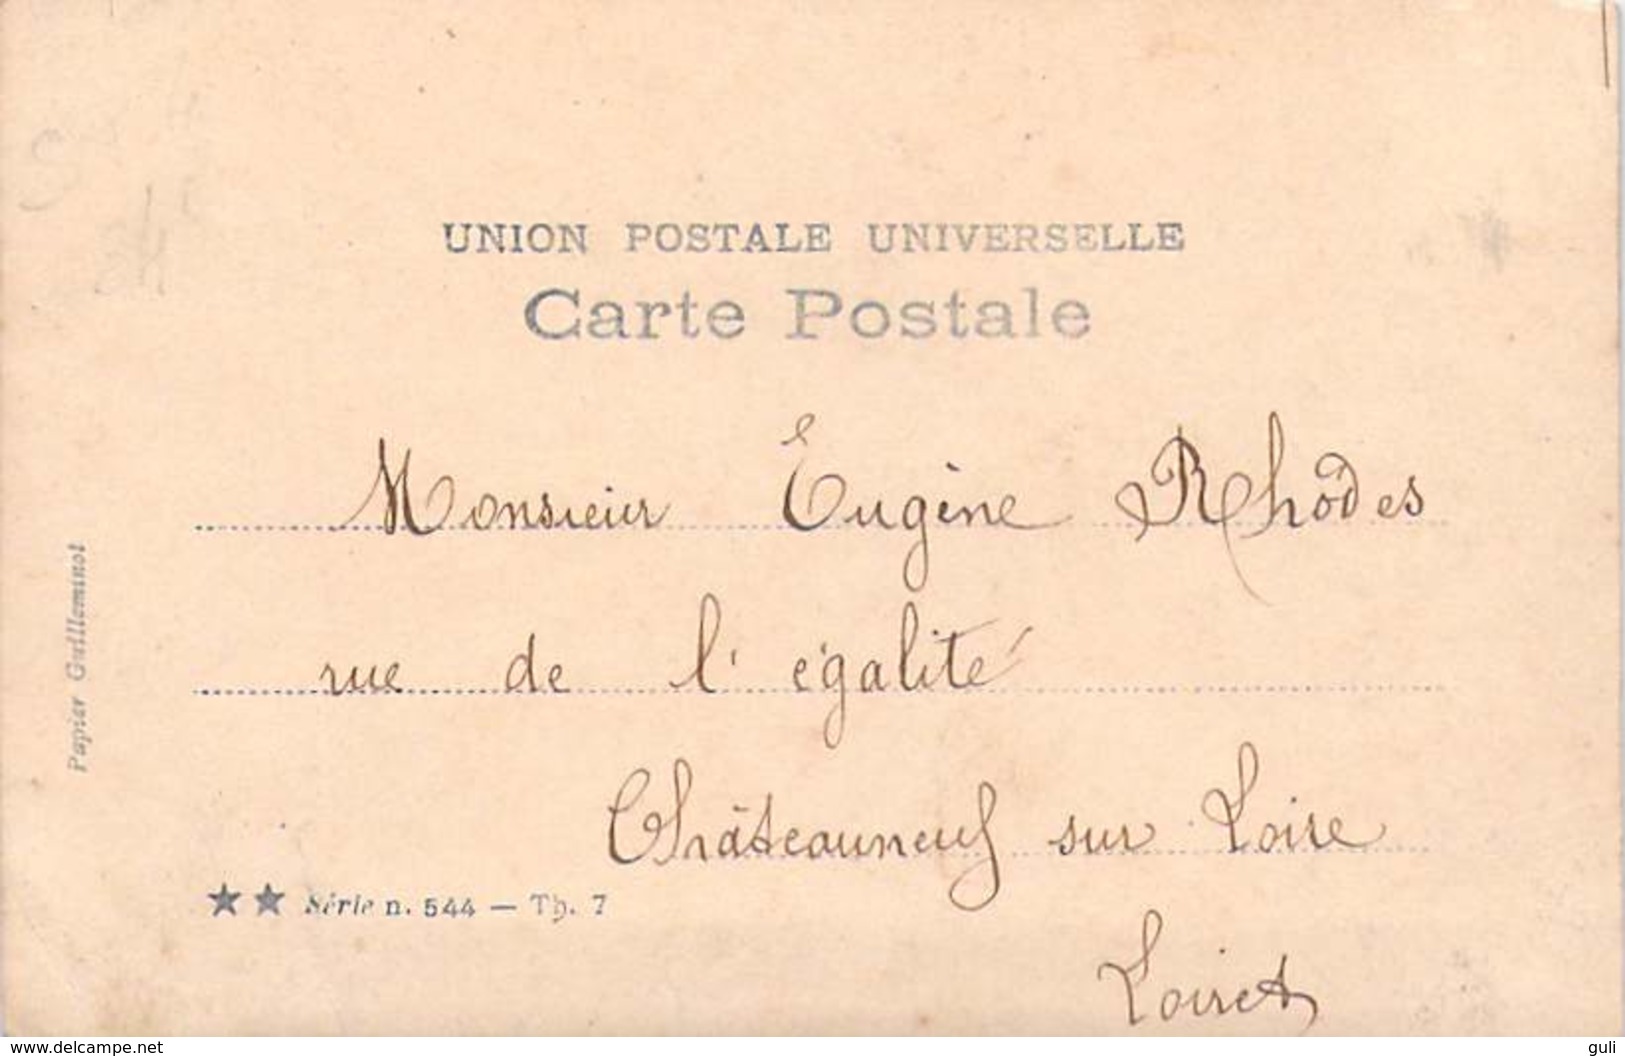 UNION POSTALE UNIVERSELLE
Carte Postale
Monsieur Eugène Rhôdes
rue de l'égalité
Châteauneuf sur Loire
Loiret
★★ Série n. 544 — Th. 7
Papier Guilleminot
www.delcampe.net
guli